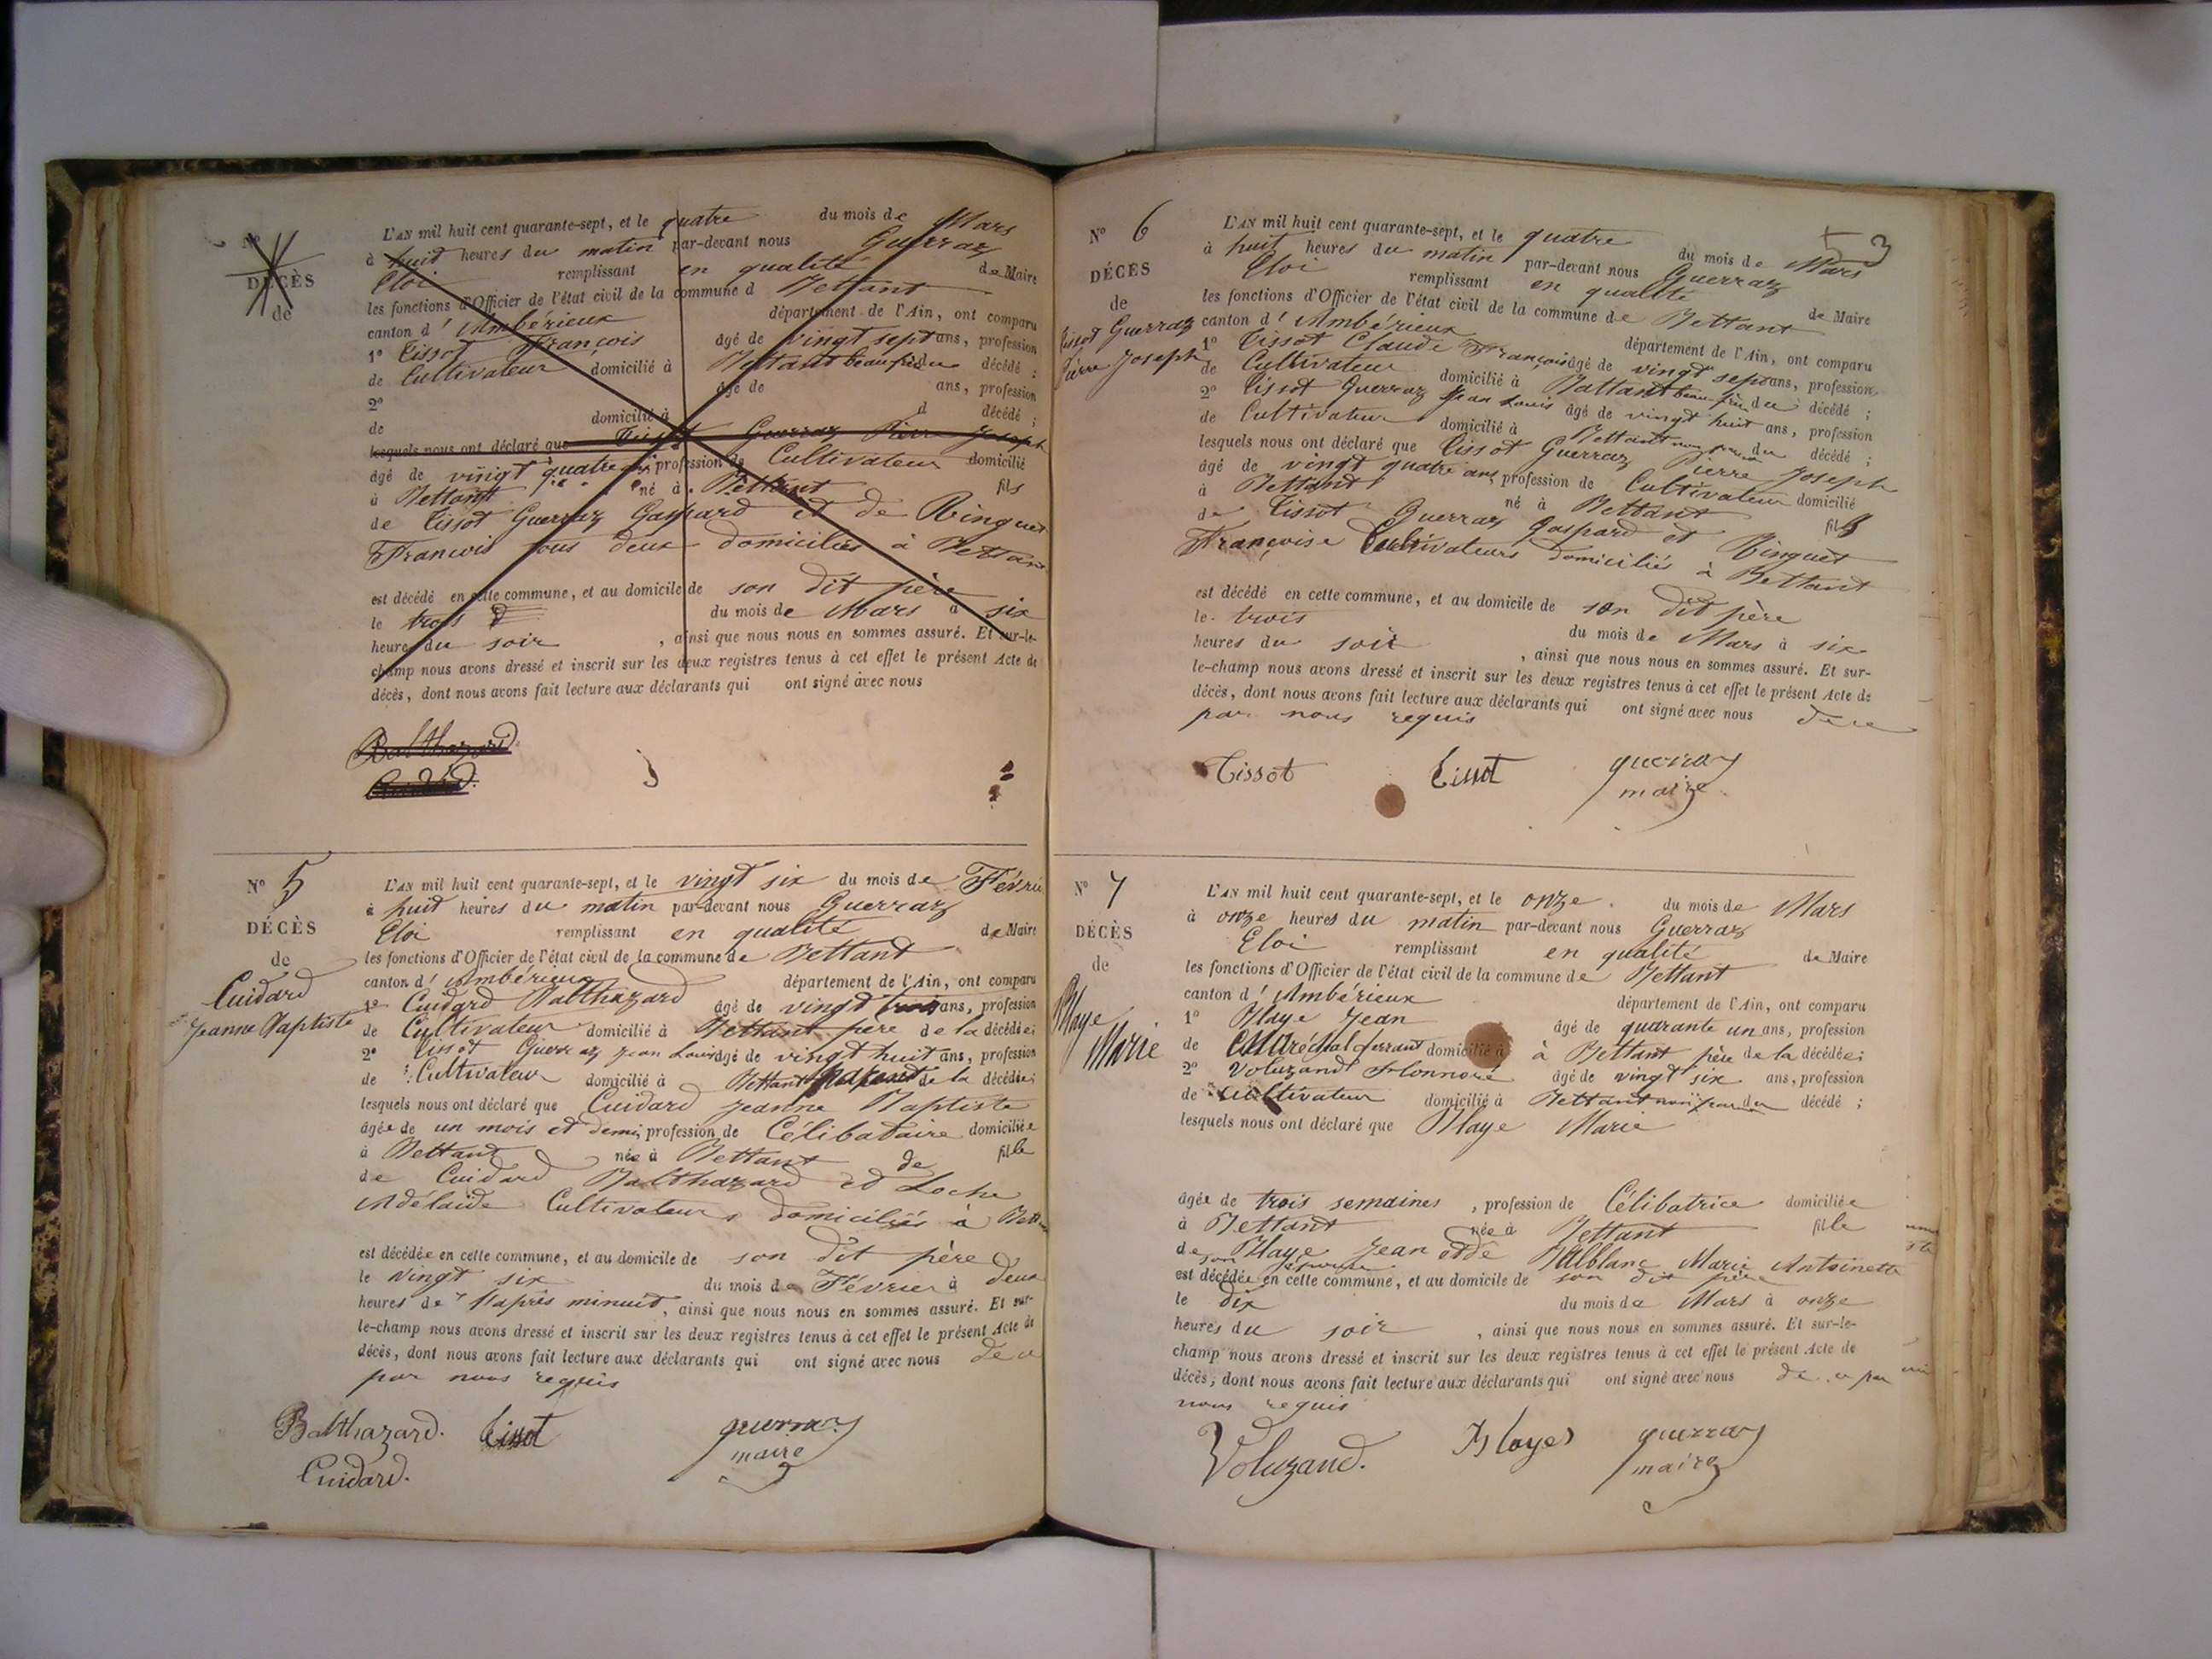 N°
DÉCÈS
de
L'AN mil huit cent quarante-sept, et le quatre du mois de Mars
à huit heures du matin par-devant nous Guerraz
Eloi remplissant en qualité de Maire
les fonctions d'Officier de l'état civil de la commune d Bettant
canton d' Ambérieux département de l'Ain, ont comparu
1° Tissot François âgé de vingt sept ans, profession
de Cultivateur domicilié à Bettant beau frèr du décédé ;
2° âgé de ans, profession
de domicilié à d décédé ;
lesquels nous ont déclaré que Tissot Guerraz Pierre Joseph
âgé de vingt quatre ans profession de Cultivateur domicilié
à Bettant né à Bettant fils
de Tissot Guerraz Gaspard et de Ringuet
Francoise tous deux domiciliés à Bettant
est décédé en cette commune, et au domicile de son dit père
le trois du mois de Mars à six
heures du soir , ainsi que nous nous en sommes assuré. Et sur-le-
champ nous avons dressé et inscrit sur les deux registres tenus à cet effet le présent Acte de
décès, dont nous avons fait lecture aux déclarants qui ont signé avec nous
Balthazard
Cuidard.
N° 5
DÉCÈS
de
Cuidard
Jeanne Baptiste
L'AN mil huit cent quarante-sept, et le vingt six du mois de Févrie
à huit heures du matin par-devant nous Guerraz
Eloi remplissant en qualité de Maire
les fonctions d'Officier de l'état civil de la commune de Bettant
canton d' Ambérieux département de l'Ain, ont comparu
1° Cuidard Balthazard âgé de vingt trois ans, profession
de Cultivateur domicilié à Bettant père de la décédée ;
2° Tissot Guerraz Jean Louis âgé de vingt huit ans, profession
de Cultivateur domicilié à Bettant parent de la décédée ;
lesquels nous ont déclaré que Cuidard Jeanne Baptiste
âgée de un mois et demi, profession de Célibataire domiciliée
à Bettant née à Bettant de fille
de Cuidard Balthazard et Loche
Adélaïde Cultivateurs domiciliés à Bett
est décédée en cette commune, et au domicile de son dit père
le vingt six du mois de Février à deux
heures de l'après minuit, ainsi que nous nous en sommes assuré. Et sur-
le-champ nous avons dressé et inscrit sur les deux registres tenus à cet effet le présent Acte de
décès, dont nous avons fait lecture aux déclarants qui ont signé avec nous de ce
par nous requis
Balthazard. Tissot guerraz
Cuidard. maire
53
N° 6
DÉCÈS
de
Tissot Guerraz
Pierre Joseph
L'AN mil huit cent quarante-sept, et le quatre du mois de Mars
à huit heures du matin par-devant nous Guerraz
Eloi remplissant en qualité de Maire
les fonctions d'Officier de l'état civil de la commune de Bettant
canton d' Ambérieux département de l'Ain, ont comparu
1° Tissot Claude François âgé de vingt sept ans, profession
de Cultivateur domicilié à Bettant beau frère du décédé ;
2° Tissot Guerraz Jean Louis âgé de vingt huit ans, profession
de Cultivateur domicilié à Bettant non parent du décédé ;
lesquels nous ont déclaré que Tissot Guerraz Pierre Joseph
âgé de vingt quatre ans profession de Cultivateur domicilié
à Bettant né à Bettant fils
de Tissot Guerraz Gaspard et Ringuet
Françoise Cultivateurs domiciliés à Bettant
est décédé en cette commune, et au domicile de son dit père
le trois du mois de Mars à six
heures du soir , ainsi que nous nous en sommes assuré. Et sur-
le-champ nous avons dressé et inscrit sur les deux registres tenus à cet effet le présent Acte de
décès, dont nous avons fait lecture aux déclarants qui ont signé avec nous de ce
par nous requis
Tissot Tissot guerraz
maire
N° 7
DÉCÈS
de
Blaye
Marie
L'AN mil huit cent quarante-sept, et le onze du mois de Mars
à onze heures du matin par-devant nous Guerraz
Eloi remplissant en qualité de Maire
les fonctions d'Officier de l'état civil de la commune de Bettant
canton d' Ambérieux département de l'Ain, ont comparu
1° Blaye Jean âgé de quarante un ans, profession
de Maréchal ferrant domicilié à à Bettant père de la décédée ;
2° Voluzand Honnoré âgé de vingt six ans, profession
de Cultivateur domicilié à Bettant non parent du décédé ;
lesquels nous ont déclaré que Blaye Marie
âgée de trois semaines , profession de Célibatrice domiciliée
à Bettant née à Bettant fille
de Blaye Jean et de Marie Antoinette
son épouse
est décédée en cette commune, et au domicile de son dit père
le dix du mois de Mars à onze
heures du soir , ainsi que nous nous en sommes assuré. Et sur-le-
champ nous avons dressé et inscrit sur les deux registres tenus à cet effet le présent Acte de
décès, dont nous avons fait lecture aux déclarants qui ont signé avec nous de ce par
nous requis
Voluzand. Blayes guerraz
maire